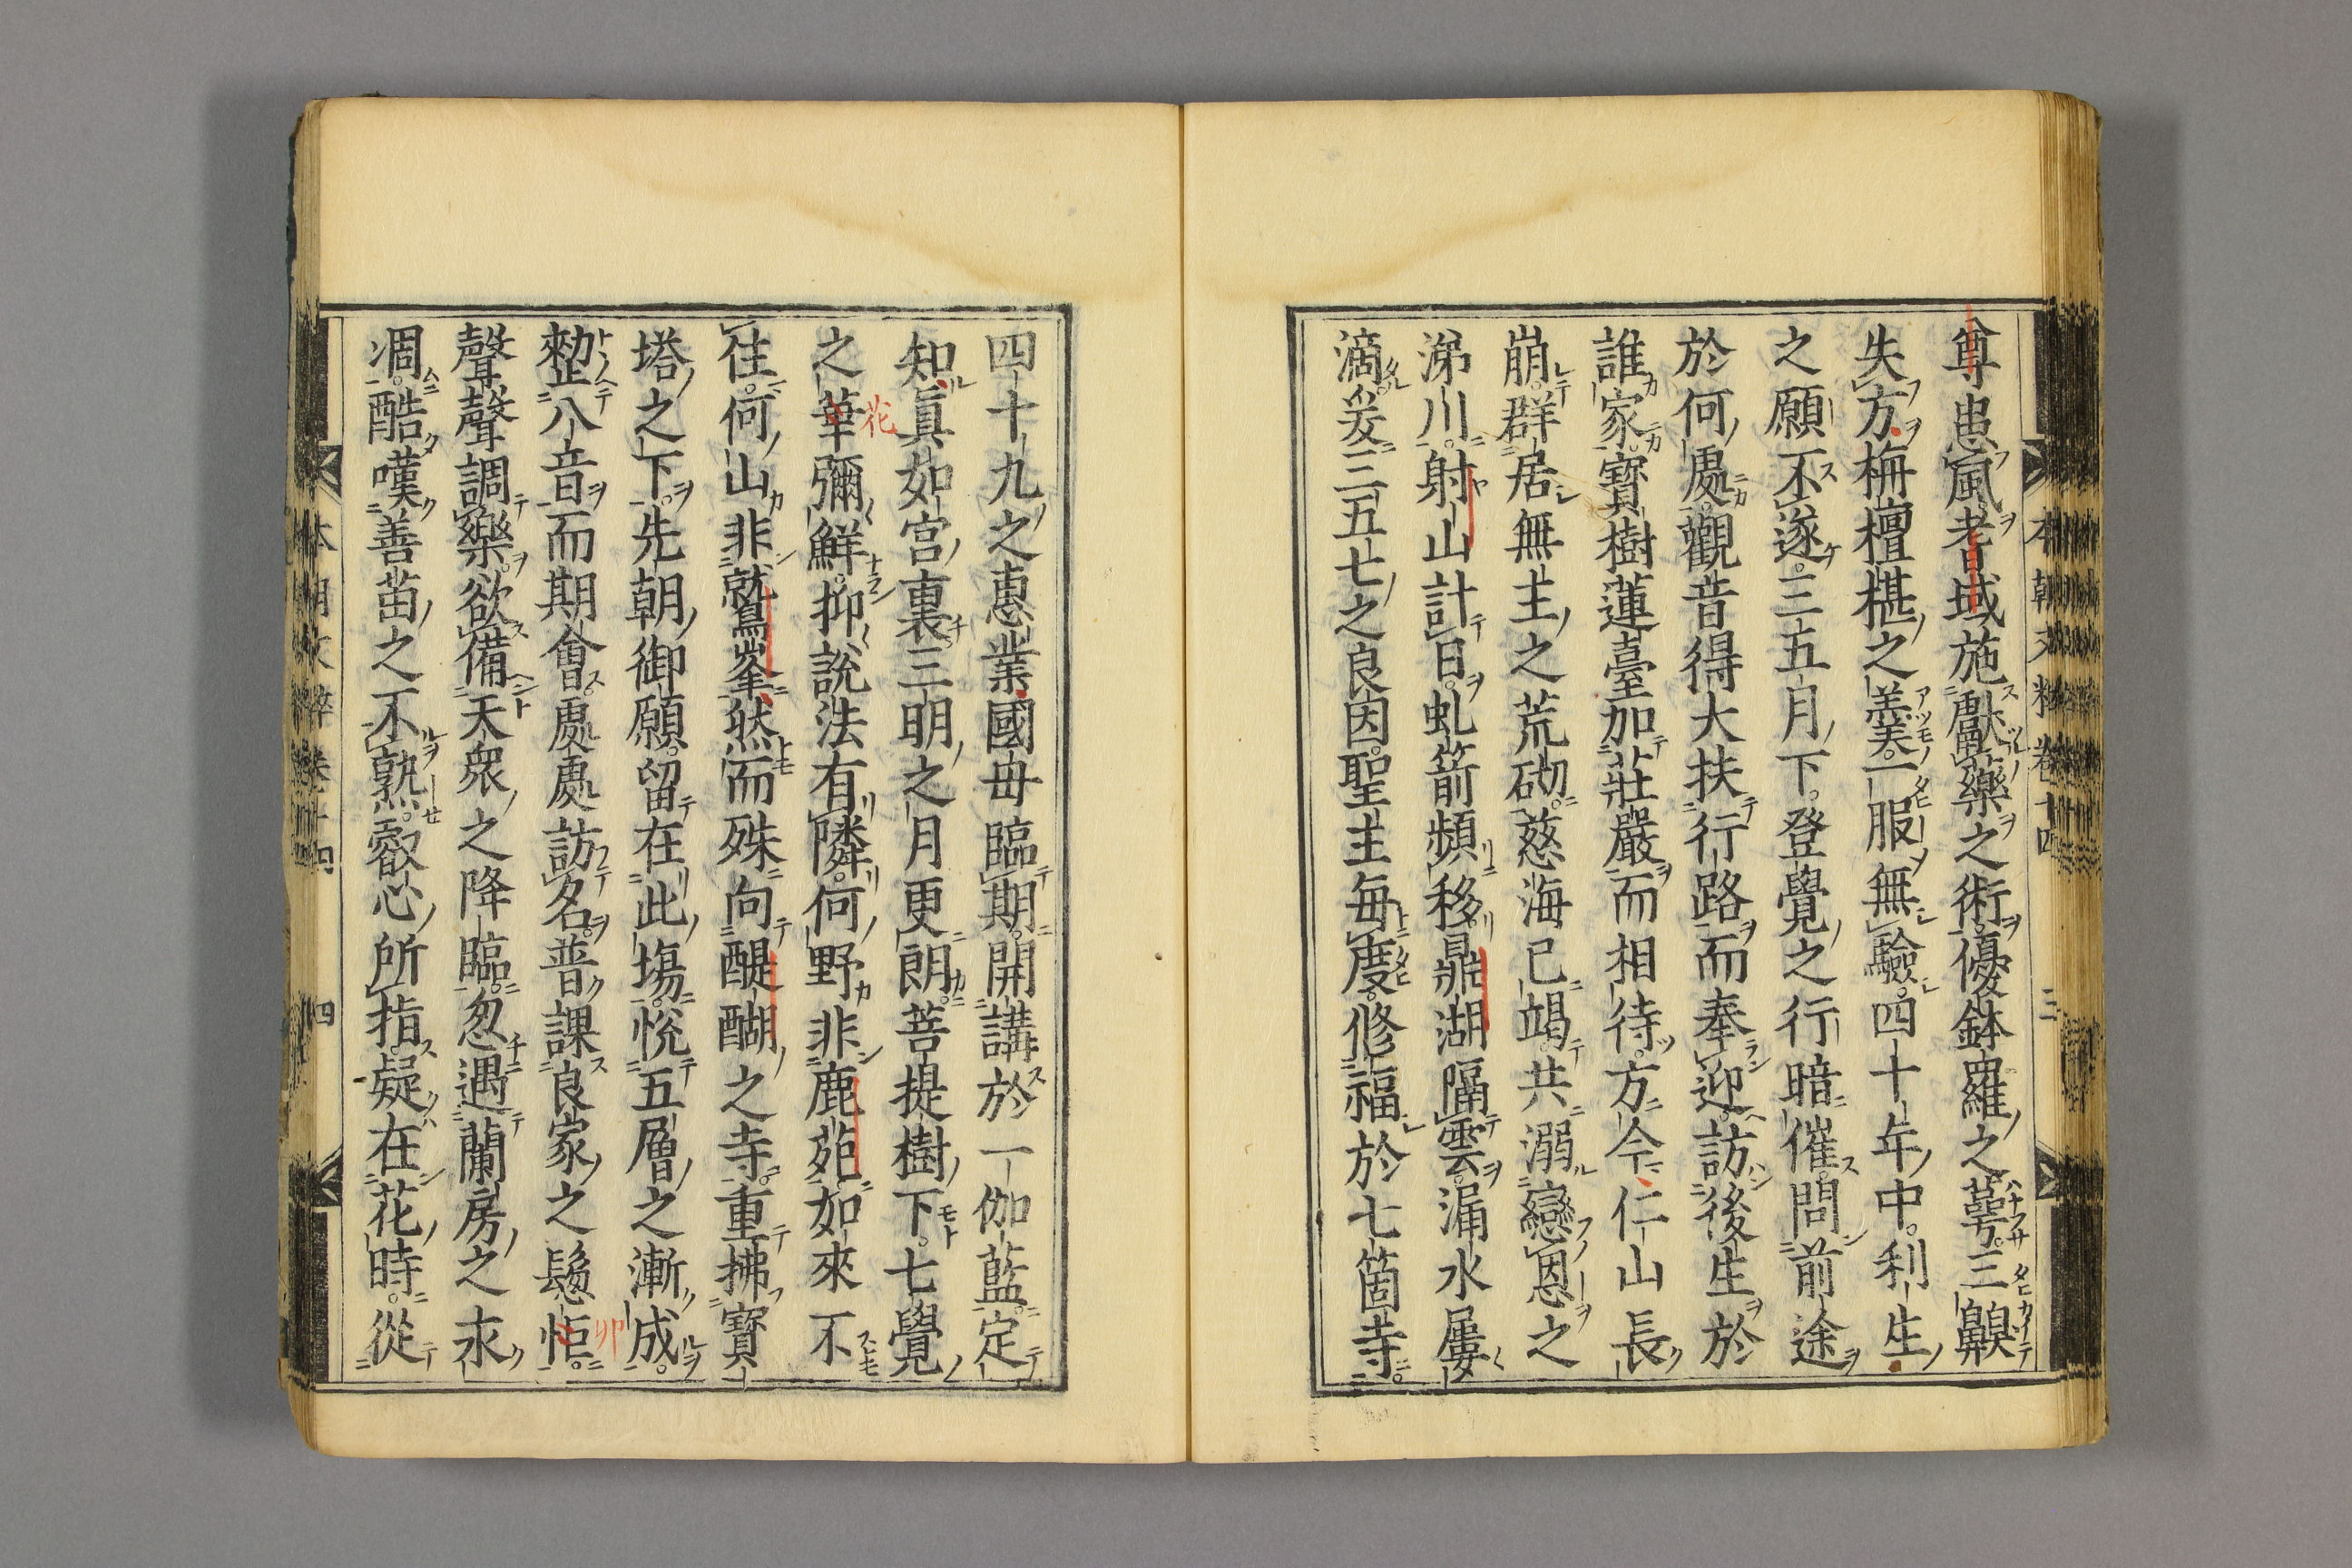 尊患風。耆域施獻藥之術。優鉢羅之蕚。三齅
失方。栴檀椹之羹。一服無驗。四十年中。利生
之願不遂。三五月下。登覺之行暗催。問前途
於何處。觀音得大扶行路而奉迎。訪後生於
誰家。寶樹蓮臺加莊嚴而相待。方今仁山長
崩。群居無主之荒砌。慈海已竭。共溺戀恩之
涕川。射山計日。虬箭頻移。鼎湖隔雲。漏水屢
滴。爰三五七之良因。聖主每度。修福於七箇寺。
四十九之惠業。國母臨期。開講於一伽藍。定
知眞如宮裏。三明之月更朗。菩提樹下。七覺
之華彌鮮。抑說法有隣。何野非鹿苑。如來不
住。何山非鷲峯。然而殊向醍醐之寺。重拂寶
塔之下。先朝御願。留在此塲。悅五層之漸成。
整八音而期會。處處訪名。普課良家之鬏怇。
聲聲調樂。欲備天衆之降臨。忽遇蘭房之永
凋。酷嘆善苗之不熟。叡心所指。疑在花時。從
花
卯
本朝文粹卷十四 三
本朝文粹卷十四 四